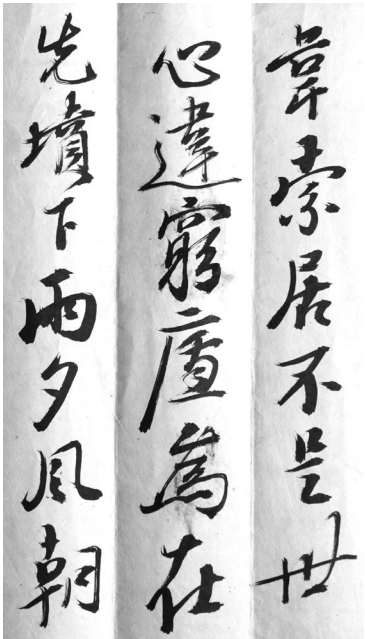 韋索居不是世
心違窮廬為在
先墳下雨夕風朝